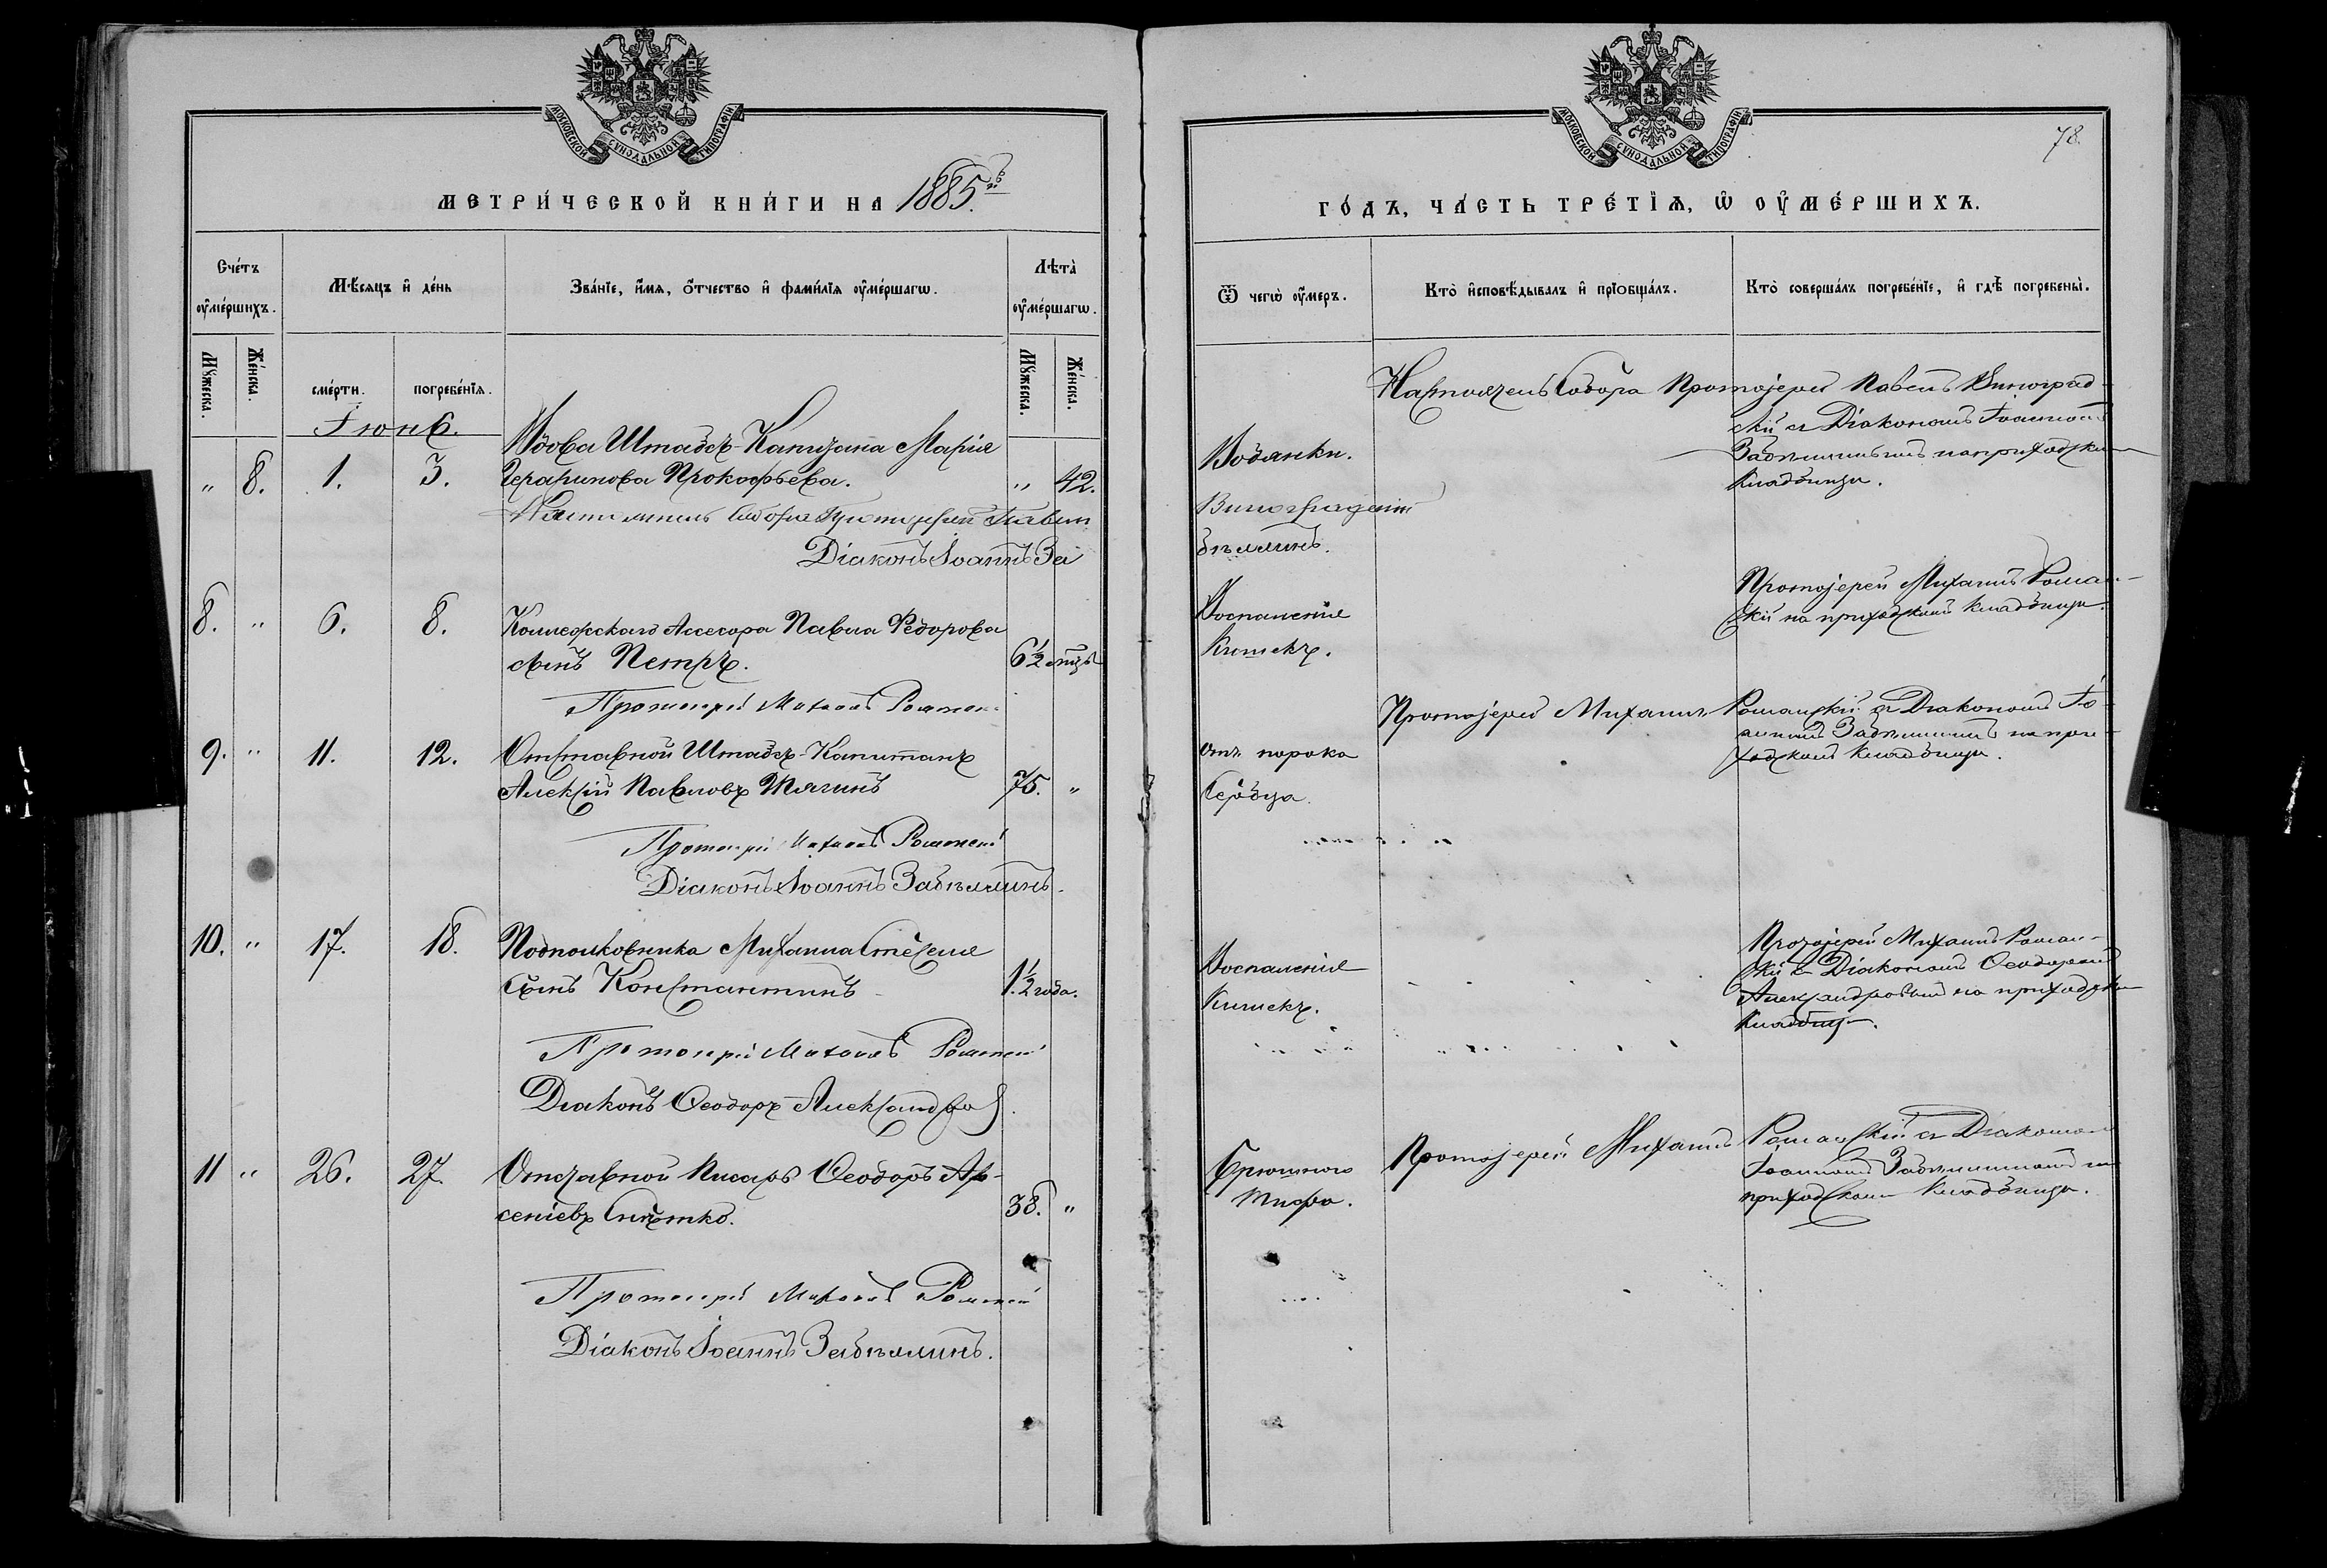 МОСКОВСКОЙ СѴНОДАЛЬНОЙ ТИПОГРАФІИ
МЕТРИ́ЧЕСКОЙ КНИ́ГИ НА 1885й
Сче́тъ оу҆ме́ршихъ.
Мѣ́сяцъ и҆ де́нь
Зва́нїе, и҆́мя, ѻ҆́тчество и҆ фами́лїя оу҆ме́ршагѡ.
Лѣта̀ оу҆ме́ршагѡ.
Мꙋ́жеска.
Же́нска.
сме́рти.
погребе́нїя.
Мꙋ́жеска.
Же́нска.
Іюнь.
Вдова Штабсъ-Капитана Марія
" 8. 1. 3. Герасимова Прокофьева. " 42.
Настоятель Собора Протоіерей Павелъ
Діаконъ Іоаннъ За
8. " 6. 8. Коллежскаго Ассесора Павла Ѳедорова
сынъ Петръ. 6½ мѣс.
Протоіерей Михаилъ Романскій
9. " 11. 12. Отставной Штабсъ-Капитанъ
Алексій Павловъ Тягинъ 75. "
Протоіерей Михаилъ Романскій
Діаконъ Іоаннъ Забѣлинъ.
10. " 17. 18. Подполковника Михаила
сынъ Константинъ 1.½ года.
Протоіерей Михаилъ Романскій
Діаконъ Ѳеодоръ Александров
11 " 26. 27. Отставной Писарь Ѳеодоръ Ар-
сеніевъ 38. "
Протоіерей Михаилъ Романскій
Діаконъ Іоаннъ Забѣлинъ.
МОСКОВСКОЙ СѴНОДАЛЬНОЙ ТИПОГРАФІИ
78.
ГО́ДЪ, ЧА́СТЬ ТРЕ́ТЇѦ, Ѡ҆ ОУ҆МЕ́РШИХЪ.
Ѿ чегѡ̀ оу҆́меръ.
Кто̀ и҆сповѣ́дывалъ и҆ прїобща́лъ.
Кто̀ соверша́лъ погребе́нїе, и҆ гдѣ̀ погребены̀.
Настоятель Собора Протоіерей Павелъ Виноград-
скій съ Діакономъ Іоанномъ
Водянки.
Забѣлинымъ на приходскомъ
кладбищѣ.
Виноградскій
бѣлинъ.
Воспаленіе
кишекъ.
Протоіерей Михаилъ Роман-
скій на приходскомъ кладбищѣ.
Протоіерей Михаилъ Романскій съ Діакономъ Іо-
анномъ Забѣлинымъ на при-
ходскомъ кладбищѣ.
отъ порока
Сердца.
Воспаленіе
кишекъ.
Протоіерей Михаилъ Роман-
скій съ Діакономъ Ѳеодоромъ
Александровымъ на приходскомъ
кладбищѣ.
Брюшного
тифа.
Протоіерей Михаилъ Романскій съ Діакономъ
Іоанномъ Забѣлинымъ на
приходскомъ кладбищѣ.